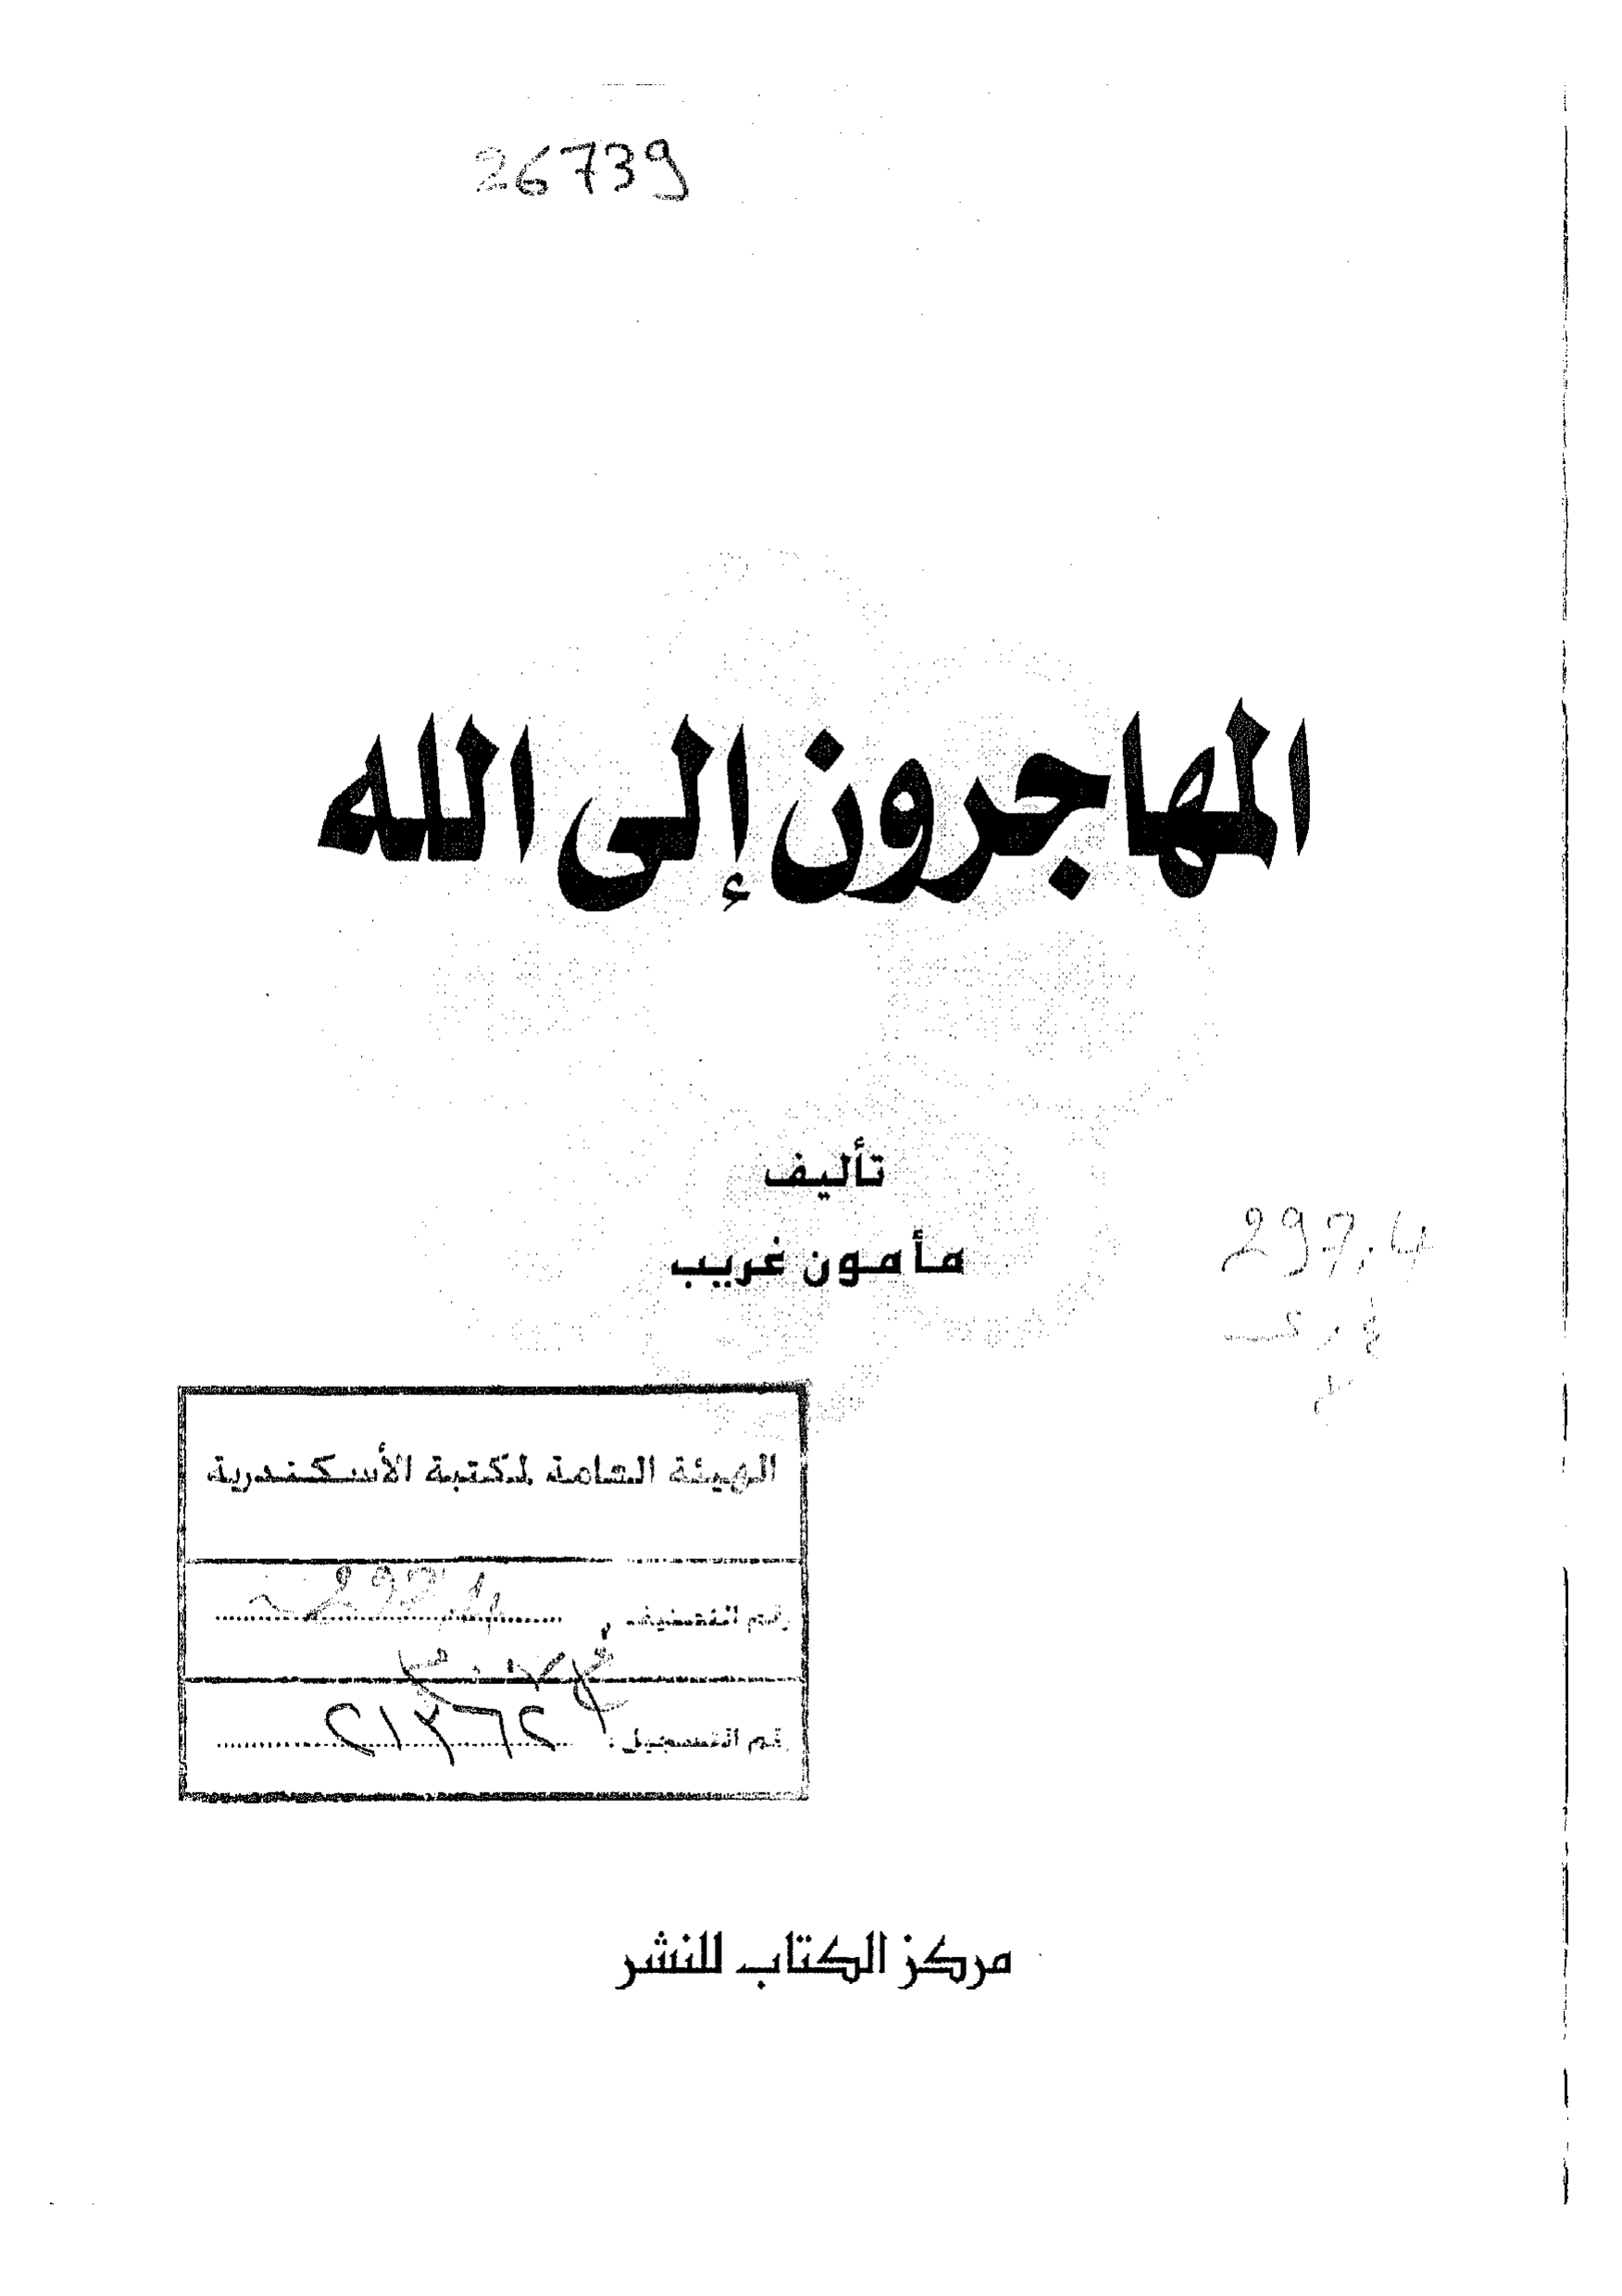 26739
المهاجرون إلى الله
تأليف
مأمون غريب
297.4
الهيئة العامة لمكتبة الأسكندرية
رقم التصنيف
رقم التسجيل: ٢١٣٦٢
مركز الكتاب للنشر